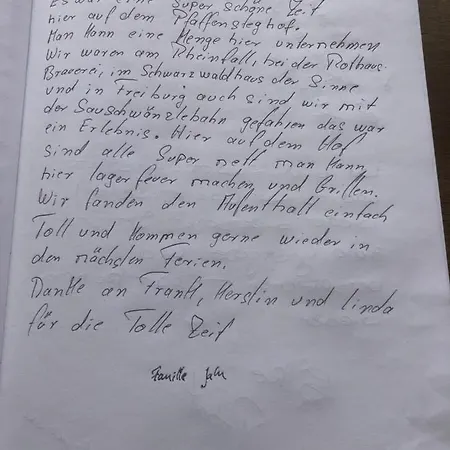 Es war eine super schöne Zeit
hier auf dem Pfaffensteghof.
Man Kann eine Menge hier unternehmen
Wir waren am Rheinfall, bei der Rothaus-
Brauerei, im Schwarzwaldhaus der Sinne
und in Freiburg auch sind wir mit
der Sauschwänzlebahn gefahren das war
ein Erlebnis. Hier auf dem Hof
sind alle Super nett man Kann
hier lagerfeuer machen und Grillen.
Wir fanden den Aufenthalt einfach
Toll und Kommen gerne wieder in
den nächsten Ferien.
Danke an Frank, Kerstin und Linda
für die Tolle Zeit
Familie